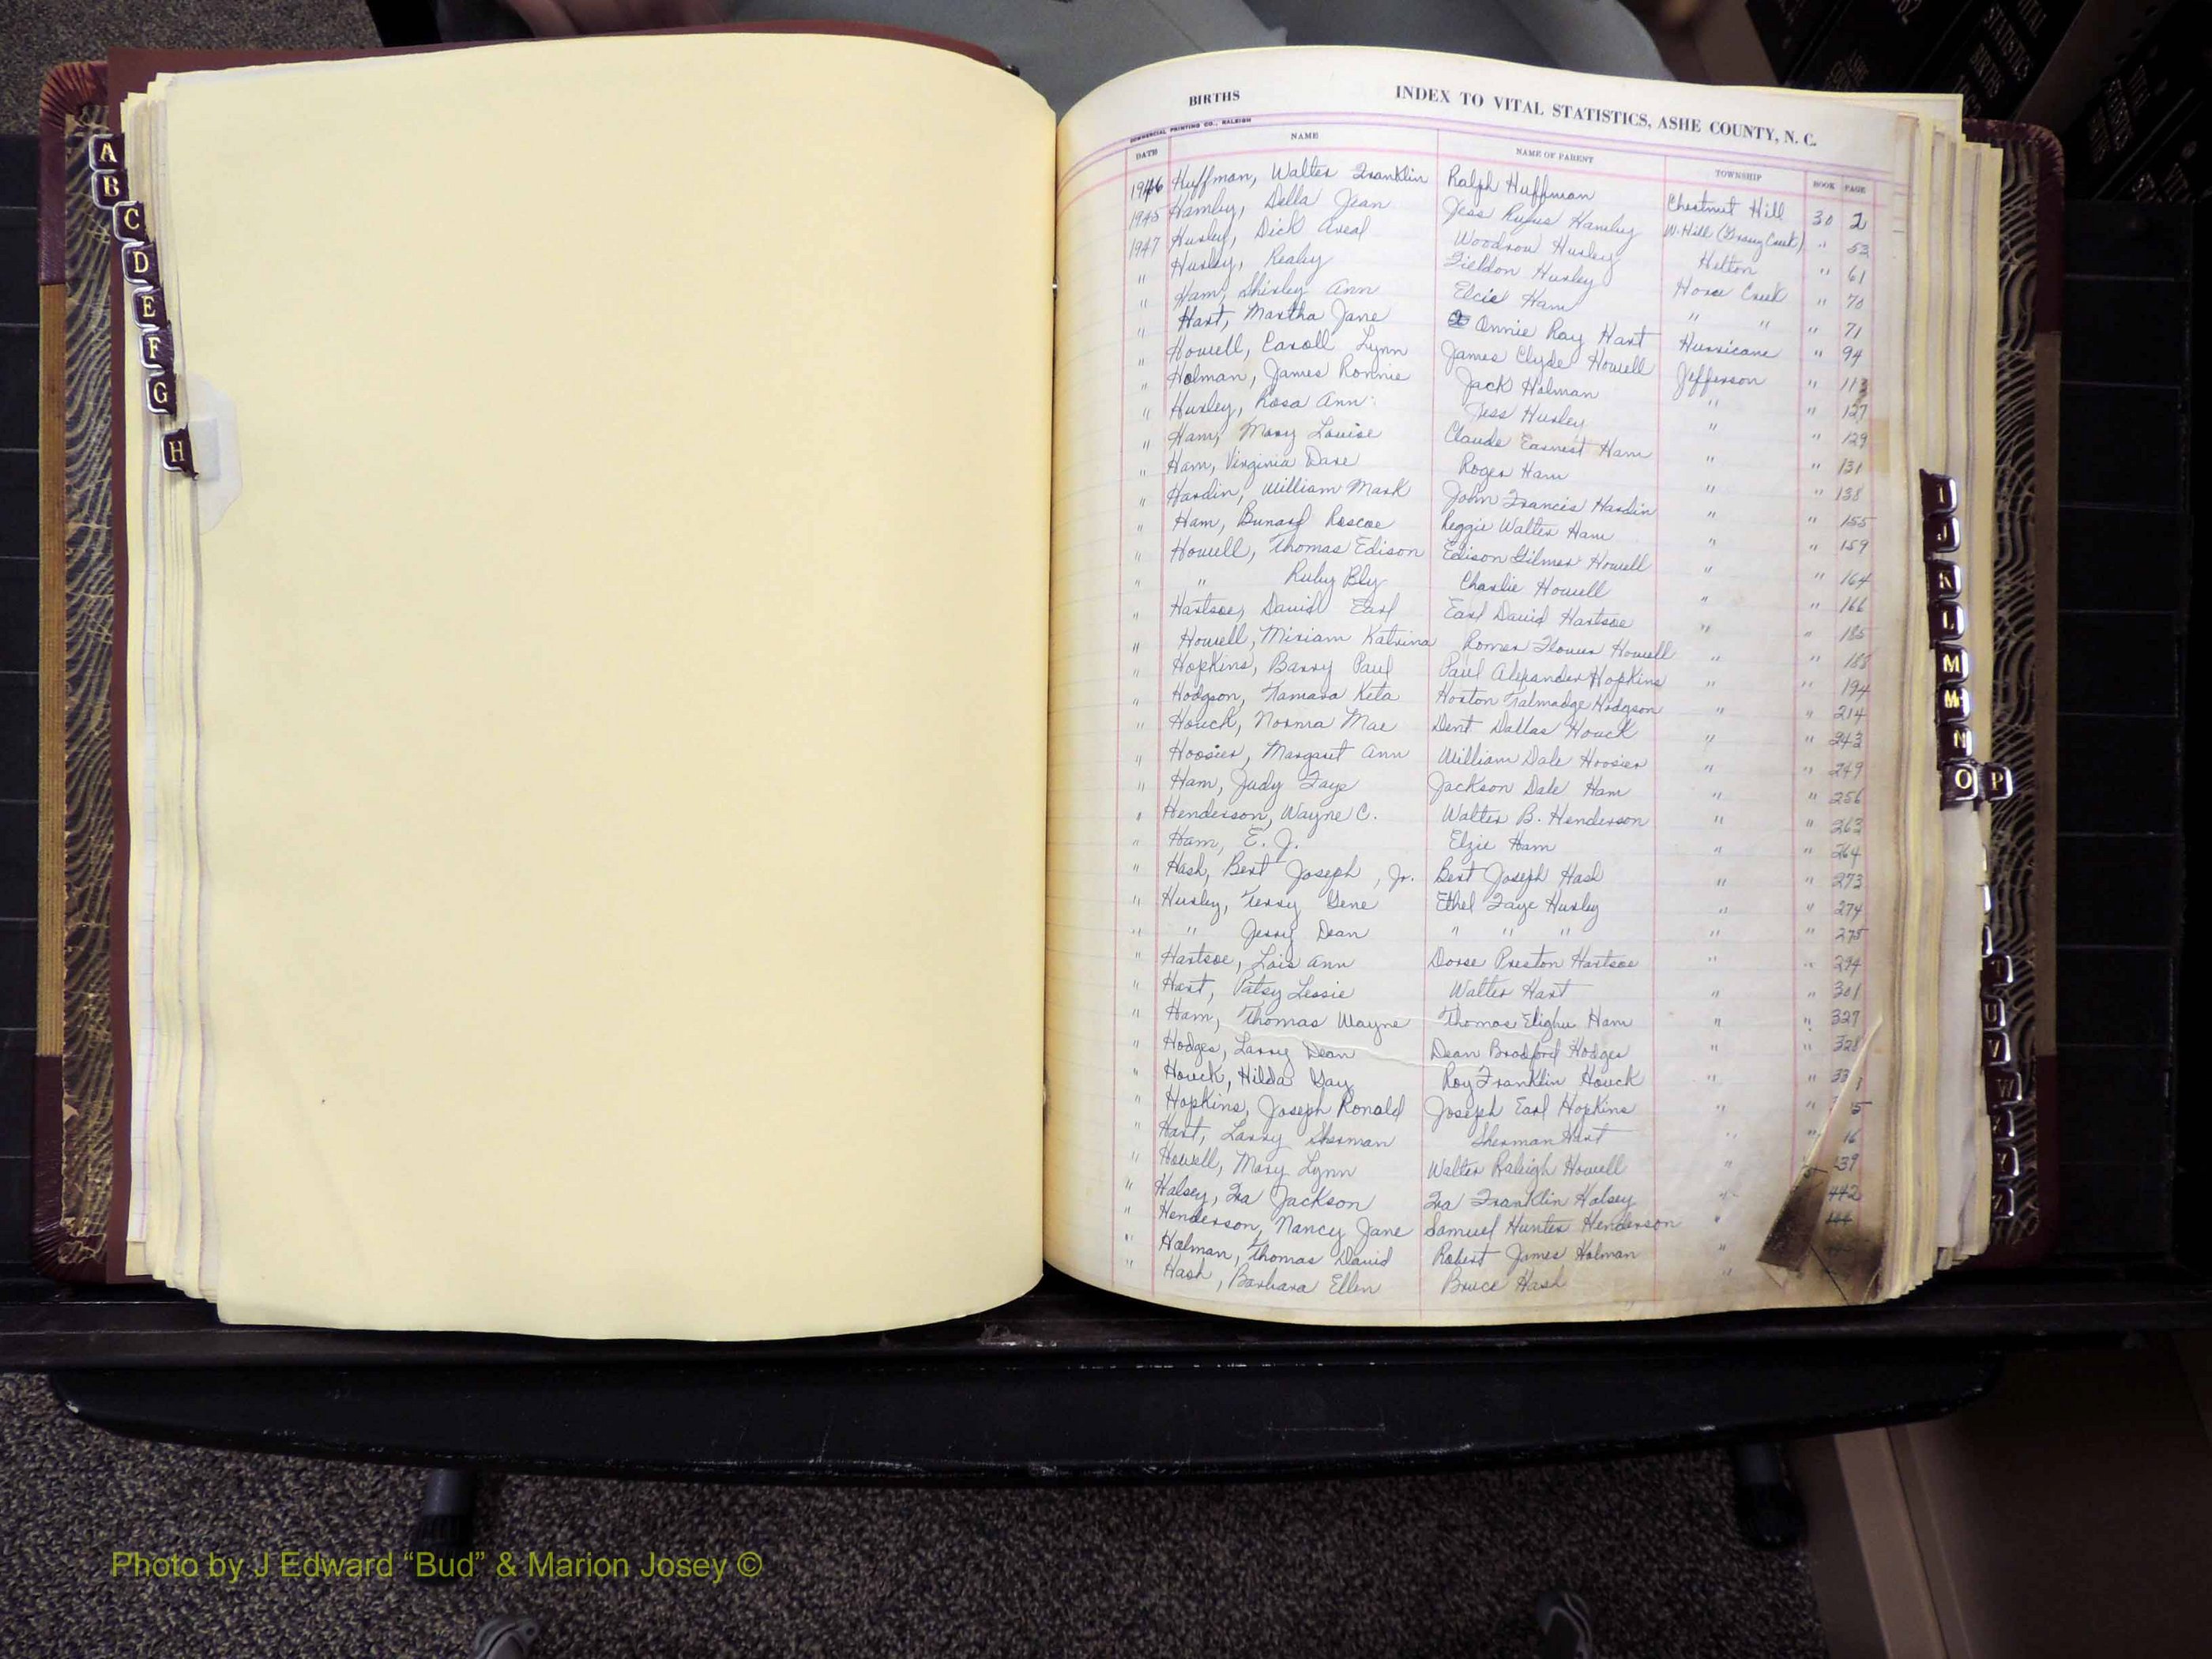 BIRTHS INDEX TO VITAL STATISTICS, ASHE COUNTY, N. C.
COMMERCIAL PRINTING CO., RALEIGH
DATE NAME NAME OF PARENT TOWNSHIP BOOK PAGE
1946 Huffman, Walter Franklin Ralph Huffman Chestnut Hill 30 2
1945 Hamby, Della Jean Jess Rufus Hamby W. Hill (Grassy Creek) " 53
1947 Hurley, Dick Areal Woodrow Hurley Helton " 61
" Hurley, Fieldon Hurley Horse Creek " 70
" Ham, Shirley Ann Elcie Ham " " " 71
" Hart, Martha Jane Annie Ray Hart Hurricane " 94
" Howell, Caroll Lynn James Clyde Howell Jefferson " 113
" Holman, James Ronnie Jack Holman " " 127
" Hurley, Rosa Ann Jess Hurley " " 129
" Ham, Mary Louise Claude Earnest Ham " " 131
" Ham, Virginia Dare Roger Ham " " 138
" Hardin, William Mark John Francis Hardin " " 155
" Ham, Bunard Roscoe Reggie Walter Ham " " 159
" Howell, Thomas Edison Edison Gilmer Howell " " 164
" " Ruby Bly Charlie Howell " " 166
" Hartsoe, David Earl Earl David Hartsoe " " 185
" Howell, Miriam Katrina Romer Howell " " 188
" Hopkins, Barry Paul Paul Alexander Hopkins " " 194
" Hodgson, Tamara Keta Horton Talmadge Hodgson " " 214
" Houck, Norma Mae Dent Dallas Houck " " 243
" Hoosier, Margaret Ann William Dale Hoosier " " 249
" Ham, Judy Faye Jackson Dale Ham " " 256
" Henderson, Wayne C. Walter B. Henderson " " 263
" Ham, E. J. Elzie Ham " " 264
" Hash, Bert Joseph, Jr. Bert Joseph Hash " " 273
" Hurley, Terry Gene Ethel Faye Hurley " " 274
" " Jerry Dean " " " " " 275
" Hartsoe, Lois Ann Dorse Preston Hartsoe " " 294
" Hart, Patsy Lessie Walter Hart " " 301
" Ham, Thomas Wayne Thomas Elighu Ham " " 327
" Hodges, Larry Dean Dean Bradford Hodges " " 328
" Houck, Hilda Gay Roy Franklin Houck " "
" Hopkins, Joseph Ronald Joseph Earl Hopkins " "
" Hart, Larry Sherman Sherman Hart " "
" Howell, Mary Lynn Walter Raleigh Howell "
" Halsey, Ira Jackson Ira Franklin Halsey " 442
" Henderson, Nancy Jane Samuel Hunter Henderson "
" Holman, Thomas David Robert James Holman "
" Hash, Barbara Ellen Bruce Hash "
A
B
C
D
E
F
G
H
I
J
K
L
M
Mc
N
O P
T
U
V
W
Photo by J Edward “Bud” & Marion Josey ©